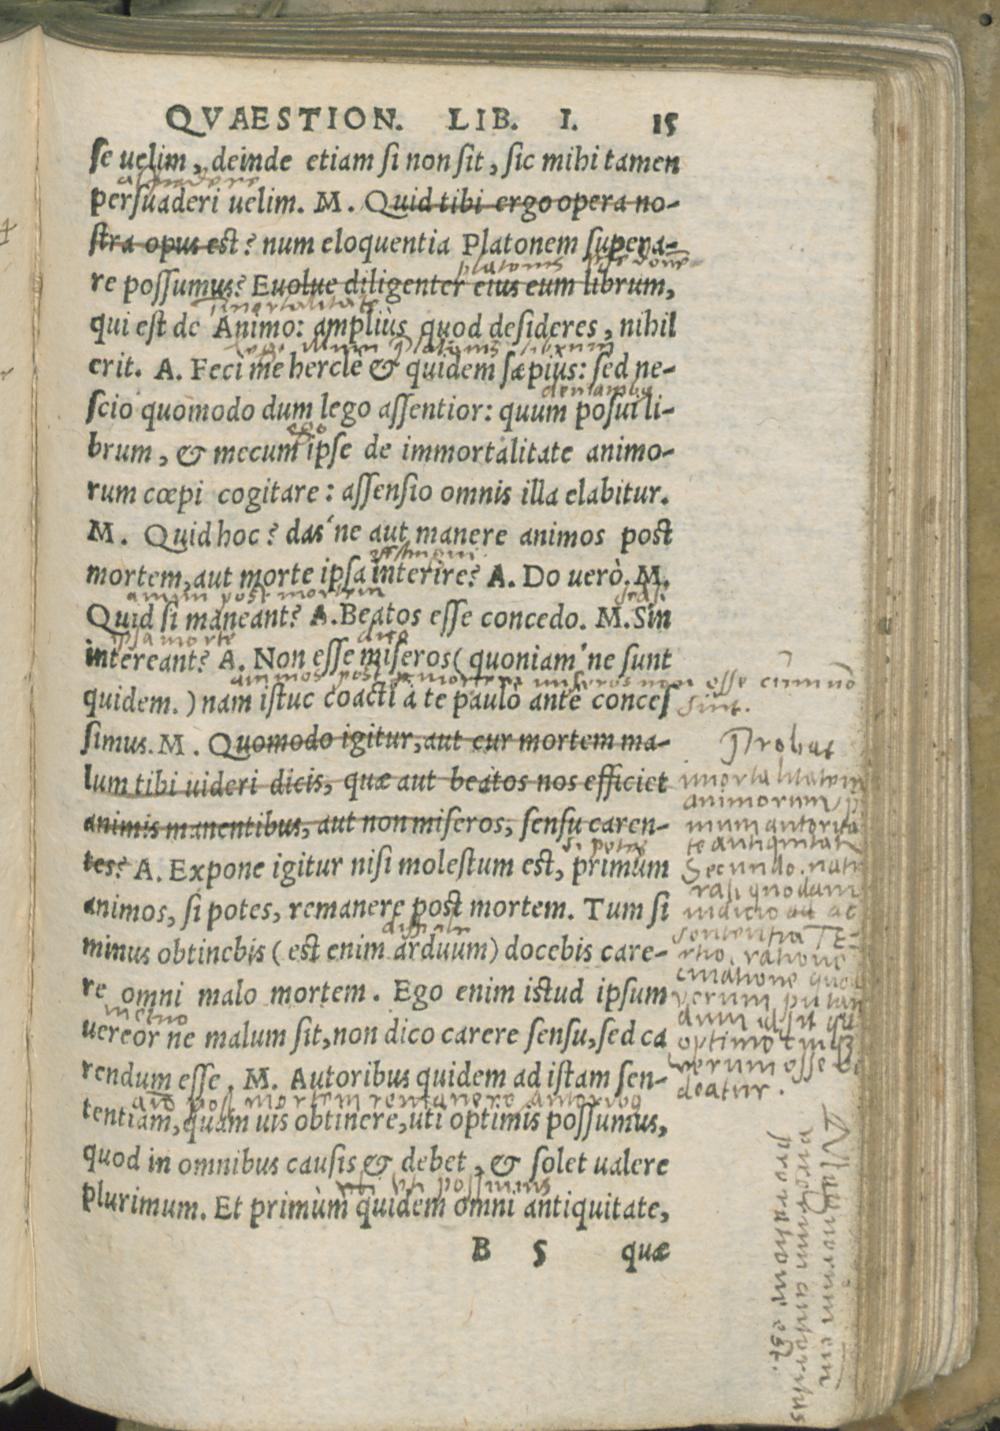 QVAESTION. LIB. I. 15
se uelim, deinde etiam si non sit, sic mihi tamen
persuaderi uelim. M. Quid tibi ergo opera no-
stra opus est? num eloquentia Platonem supera-
platonis
re possumus? Euolue diligenter eius eum librum,
imortalitate
qui est de Animo: ampliùs quod desideres, nihil
erit. A. Feci me hercle & quidem sæpius: sed ne-
scio quomodo dum lego assentior: quum posui li-
ego
brum, & mecum ipse de immortalitate animo-
rum cœpi cogitare: assensio omnis illa elabitur.
M. Quid hoc? das'ne aut manere animos post
mortem, aut morte ipsa interire? A. Do uerò. M.
animi post mortem
Quid si maneant? A. Beatos esse concedo. M. Sin
ipsa morte dico
intereant? A. Non esse miseros (quoniam'ne sunt
animos post mortem miseros non esse cum nō
quidem.) nam istuc coacti à te paulò antè conces
sint.
simus. M. Quomodo igitur, aut cur mortem ma-
lum tibi uideri dicis, quæ aut beatos nos efficiet
animis manentibus, aut non miseros, sensu caren-
si potes
tes? A. Expone igitur nisi molestum est, primùm
animos, si potes, remanere post mortem. Tum si
minus obtinebis (est enim arduum) docebis care-
re omni malo mortem. Ego enim istud ipsum
metuo
uereor ne malum sit, non dico carere sensu, sed ca
rendum esse. M. Autoribus quidem ad istam sen-
post mortem remanere
tentiam, quam uis obtinere, uti optimis possumus,
quod in omnibus causis & debet, & solet ualere
uti possumus
plurimum. Et primùm quidem omni antiquitate,
B 5 quæ
Probat
imortalitatem
animorum
te antiquitat
Secundo. natu
rali quodam
iudicio ac
sententia TE-
rtio. ratione
verum putan
dum id sit
optimo
verum esse
deatur.